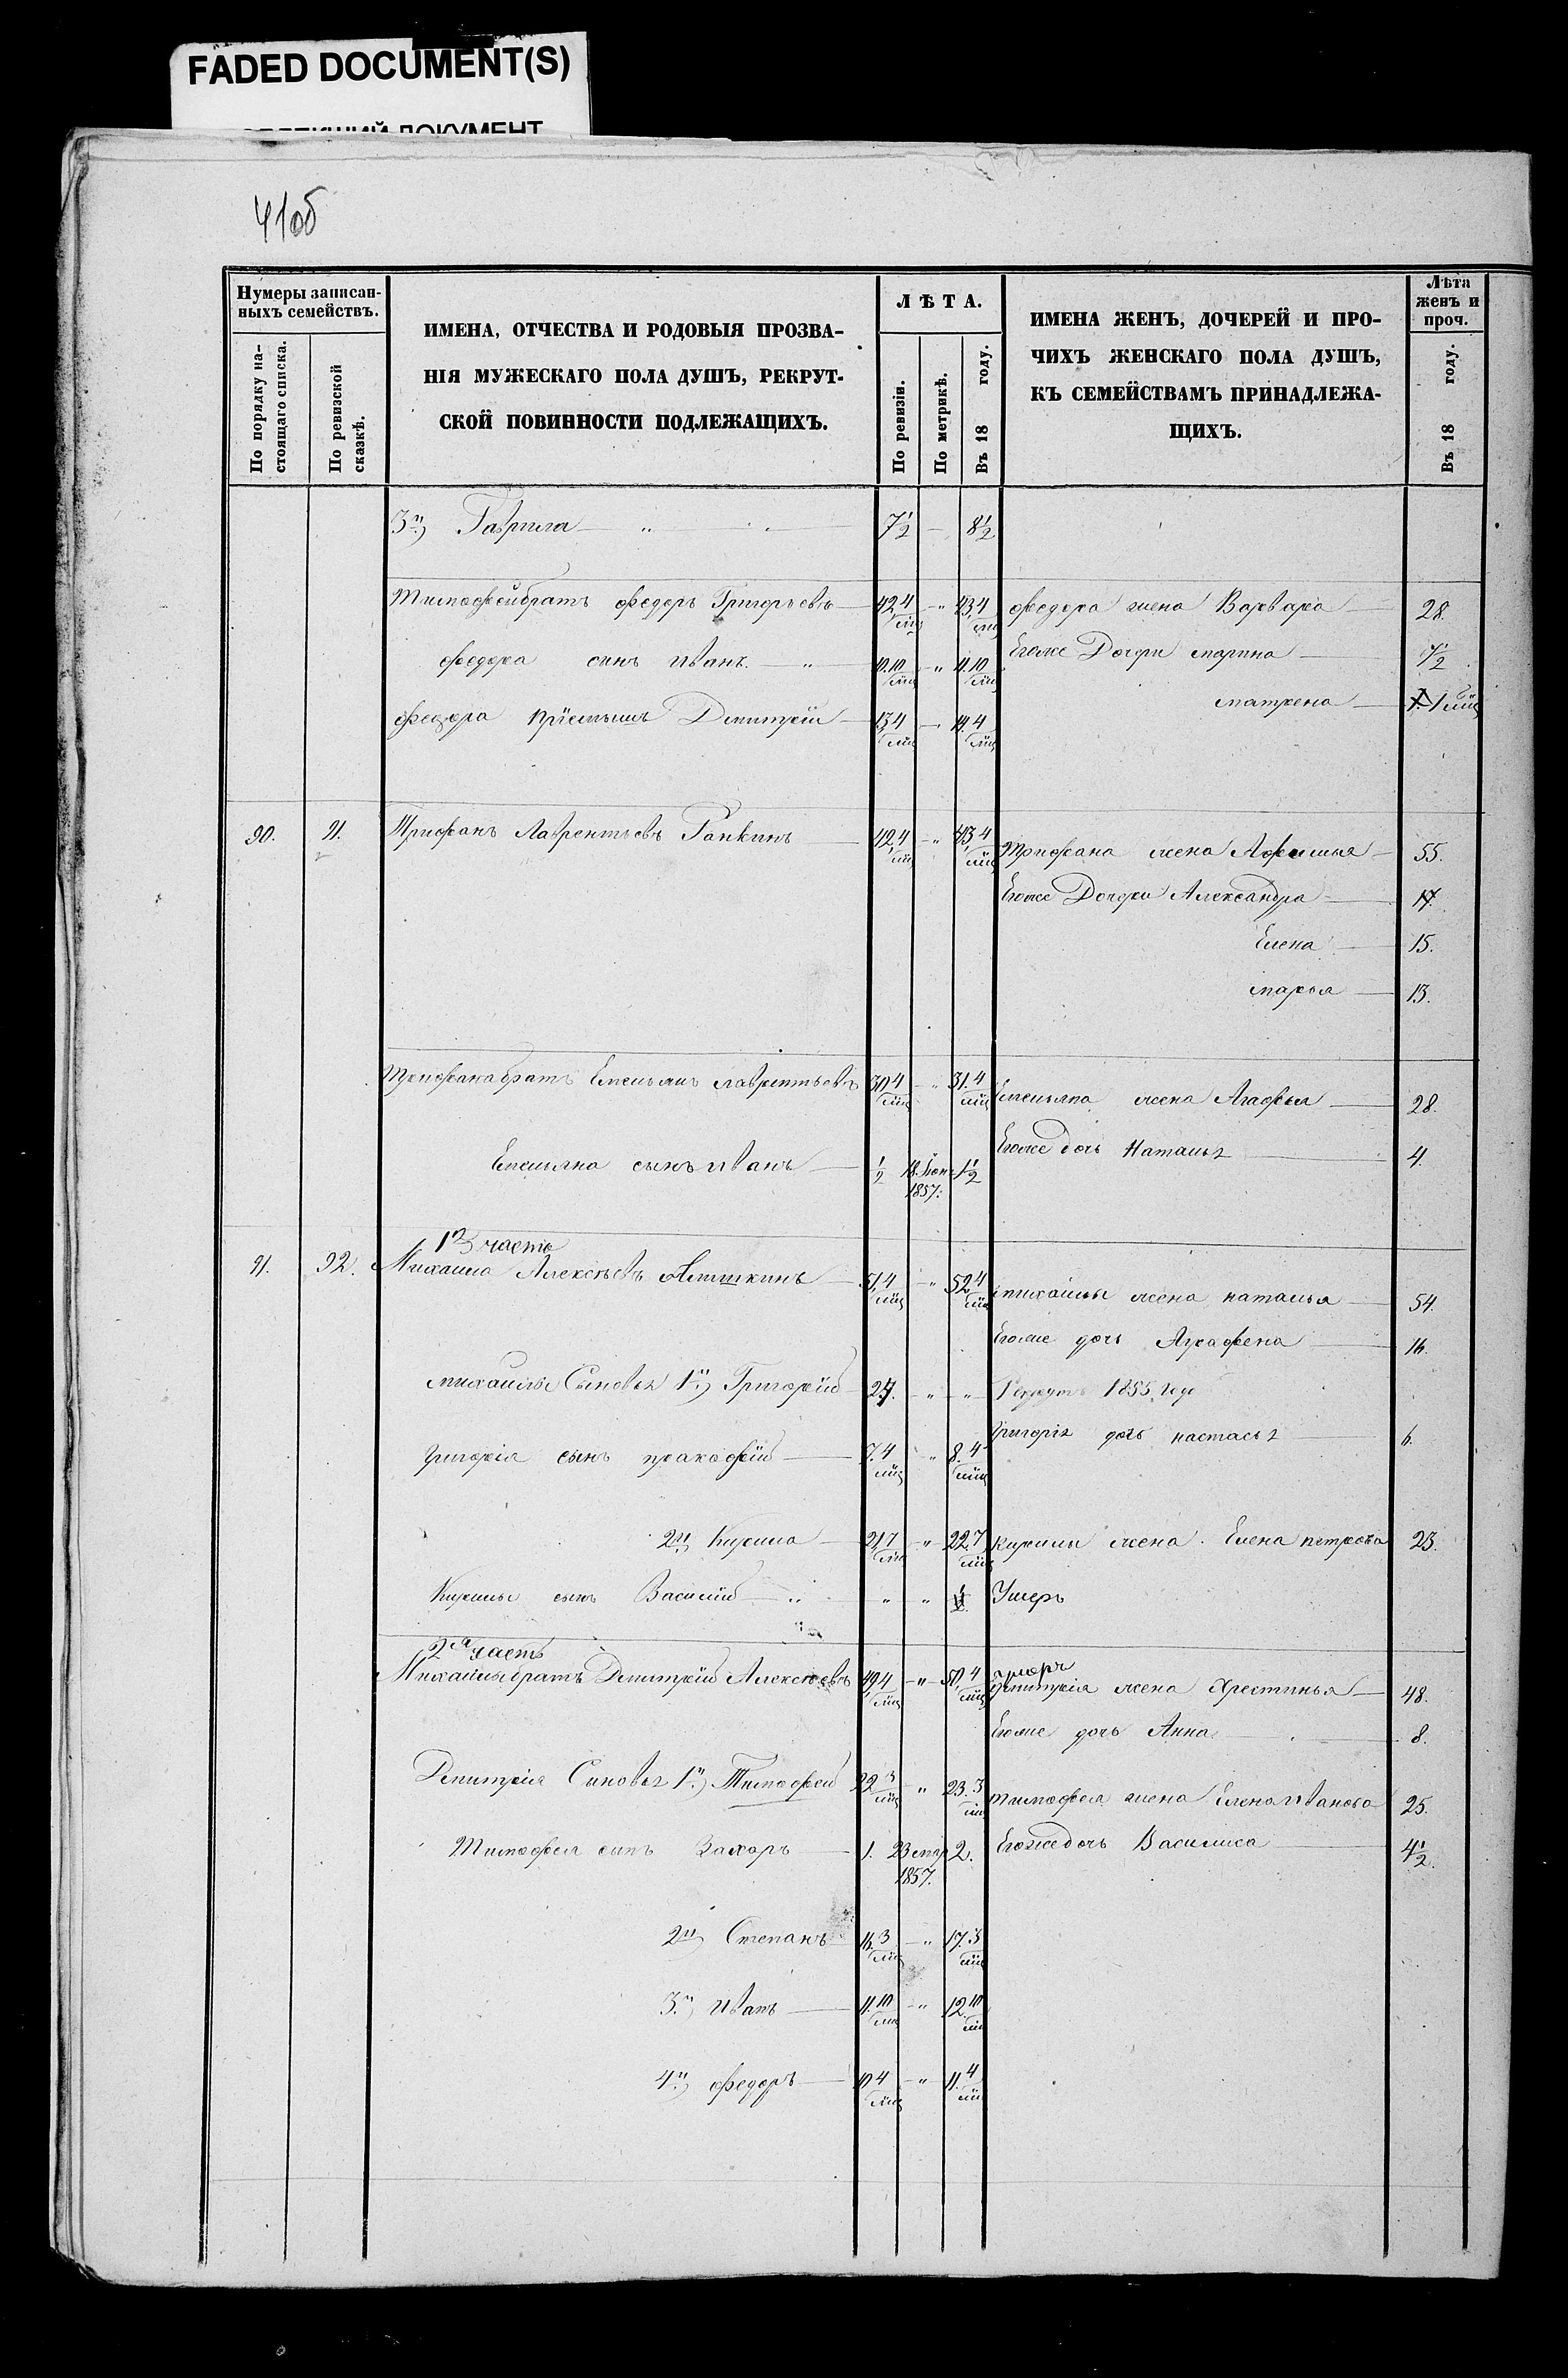 FADED DOCUMENT(S)
ДОКУМЕНТ
41об
Нумеры записан-
ныхъ семействъ.
По порядку на-
стоящаго списка.
По ревизской
сказкѣ.
ИМЕНА, ОТЧЕСТВА И РОДОВЫЯ ПРОЗВА-
НІЯ МУЖЕСКАГО ПОЛА ДУШЪ, РЕКРУТ-
СКОЙ ПОВИННОСТИ ПОДЛЕЖАЩИХЪ.
ЛѢТА.
По ревизіи.
По метрикѣ.
Въ 18 году.
ИМЕНА ЖЕНЪ, ДОЧЕРЕЙ И ПРО-
ЧИХЪ ЖЕНСКАГО ПОЛА ДУШЪ,
КЪ СЕМЕЙСТВАМЪ ПРИНАДЛЕЖА-
ЩИХЪ.
Лѣта
женъ и
проч.
Въ 18 году.
3й) Гаврила 7 1/2 — 8 1/2
Тимофей братъ федоръ Григорьевъ 42,4/мѣц " 43,4/мѣц федора жена Варвара 28.
федора сынъ иванъ 10.10/мѣц " 11.10/мѣц Егоже Дочри марина 7 1/2
матрена 1 мѣц
федора пріемышъ Дмитрій 13,4/мѣц 14.4/мѣц
90. 91. Трифанъ Лаврентьевъ Ганкинъ 42,4/мѣц " 43,4/мѣц Трифана жена Афимья 55.
Егоже Дочери Александра 17.
Елена 15.
марья 13.
Трифана братъ Емельянъ лаврентьевъ 30,4/мѣц " 31.4/мѣц Емельяна жена Агафья 28.
Емельяна сынъ иванъ 1/2 18. Іюн 1857: 1 1/2 Егоже дочь Наталья 4.
1я часть
91. 92. Михаила Алексѣевъ Алтшкинъ 51,4/мѣц " 52,4/мѣц михайлы жена наталья 54.
Егоже дочь Аграфена 16.
михайлы Сыновья 1й) Григорій 27. " " Рекрутъ 1855 года
Григорія сынъ пракофій 7.4/мѣц " 8.4/мѣц Григорія дочь настасья 6.
2й) Кирила 21,7/мѣц " 22.7/мѣц кирилы жена Елена петрова 23.
Кирилы сынъ Василій " " 1/2 Умеръ
2я часть
Михайлы братъ Дмитрій Алексѣевъ 49,4/мѣц " 50,4/мѣц умеръ
Дмитрія жена Хрестинья 48.
Егоже дочь Анна 8.
Дмитрія Сыновья 1й) Тимофей 22 3/мѣц " 23.3/мѣц тимофея жена Елена иванова 25.
Тимофея сынъ Захаръ 1. 23 мар 1857. 2. Егоже дочь Василиса 4 1/2.
2й) Степанъ 16,3/мѣц " 17.3/мѣц
3й) иванъ 11.10/мѣц " 12.10/мѣц
4й) федоръ 10,4/мѣц " 11.4/мѣц